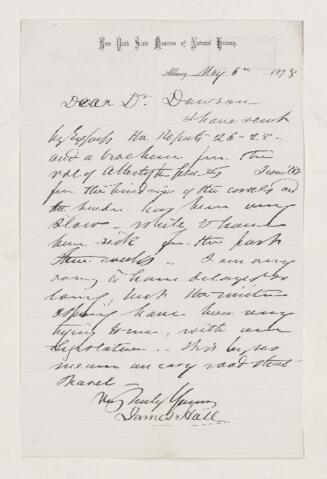 New York State Museum of Natural History,
Albany, May 6th 1878
Dear Dr. Dawson
I have sent
by Express the Reports 26-28-
and a brochure from the
vol of I waited
for the of the covers and
the binder has been very
slow - while I have
been sick for the past
three weeks - I am very
sorry to have delayed so
long, but the
have been very
trying to me, with our
Legislature - This is by no
means an easy road to
travel -
Very Truly Yours
James Hall